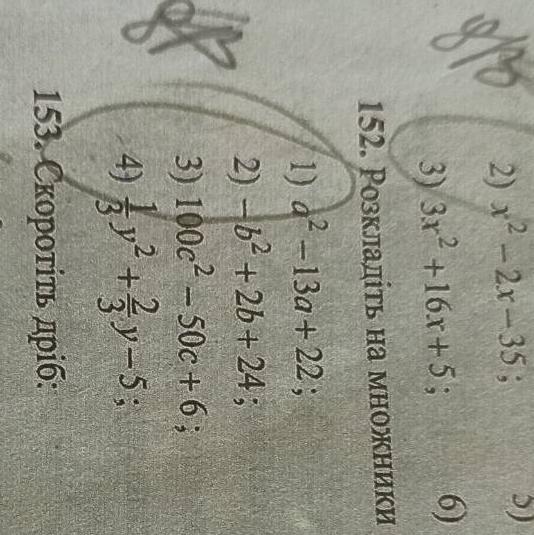 2) x² – 2x – 35;
5)
3) 3x² + 16x + 5;
6)
152. Розкладіть на множники
1) a² – 13a + 22;
2) –b² + 2b + 24;
3) 100c² – 50c + 6;
4) 1/3 y² + 2/3 y – 5;
153. Скоротіть дріб: